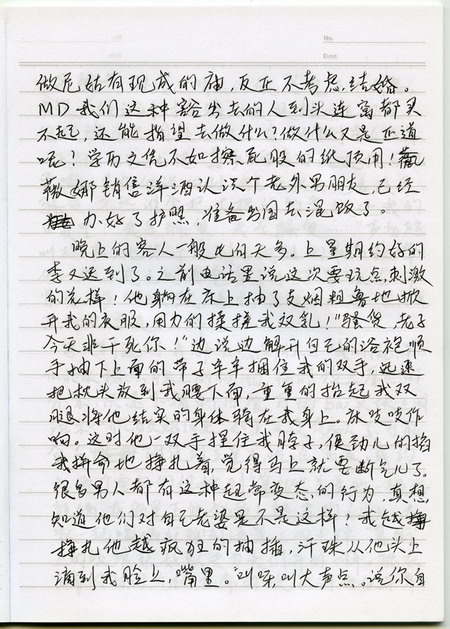 No.
Date
做尼姑有现成的庙,反正不考虑结婚。
MD我们这种豁出去的人到头连窝都买
不起,还能指望去做什么?做什么又是正道
呢!学历文凭不如擦屁股的纸顶用!薇
薇娜销售洋酒认识个老外男朋友,已经
办好了护照,准备出国去混饭了。
晚上的客人一般比白天多。上星期约好的
李又迟到了。之前电话里说这次要玩点刺激
的花样!他躺在床上抽了支烟粗鲁地掀
开我的衣服,用力的揉搓我双乳!“骚货,老子
今天非干死你!”边说边解开自己的浴袍顺
手抽下上面的带子牢牢捆住我的双手,迅速
把枕头放到我腰下面,重重的抬起我双
腿将他结实的身体骑在我身上。床吱吱作
响。这时他一双手握住我脖子,使劲儿的掐
我拼命地挣扎着,觉得马上就要断气儿了。
很多男人都有这种超常变态的行为,真想
知道他们对自己老婆是不是这样!我越
挣扎他越疯狂的抽插,汗珠从他头上
滴到我脸上,嘴里。“叫呀叫大声点。说你自